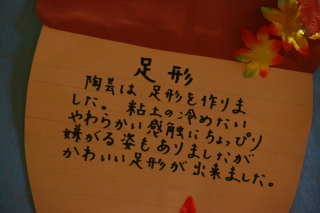 足形
陶芸は 足形を作りま
した。 粘土の冷めたい
やわらかい感触にちょっぴり
嫌がる姿もありましたが
かわいい足形が 出来ました。